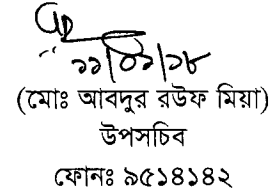 ১১/০১/১৮
(মোঃ আবদুর রউফ মিয়া)
উপসচিব
ফোনঃ ৯৫১৪১৪২